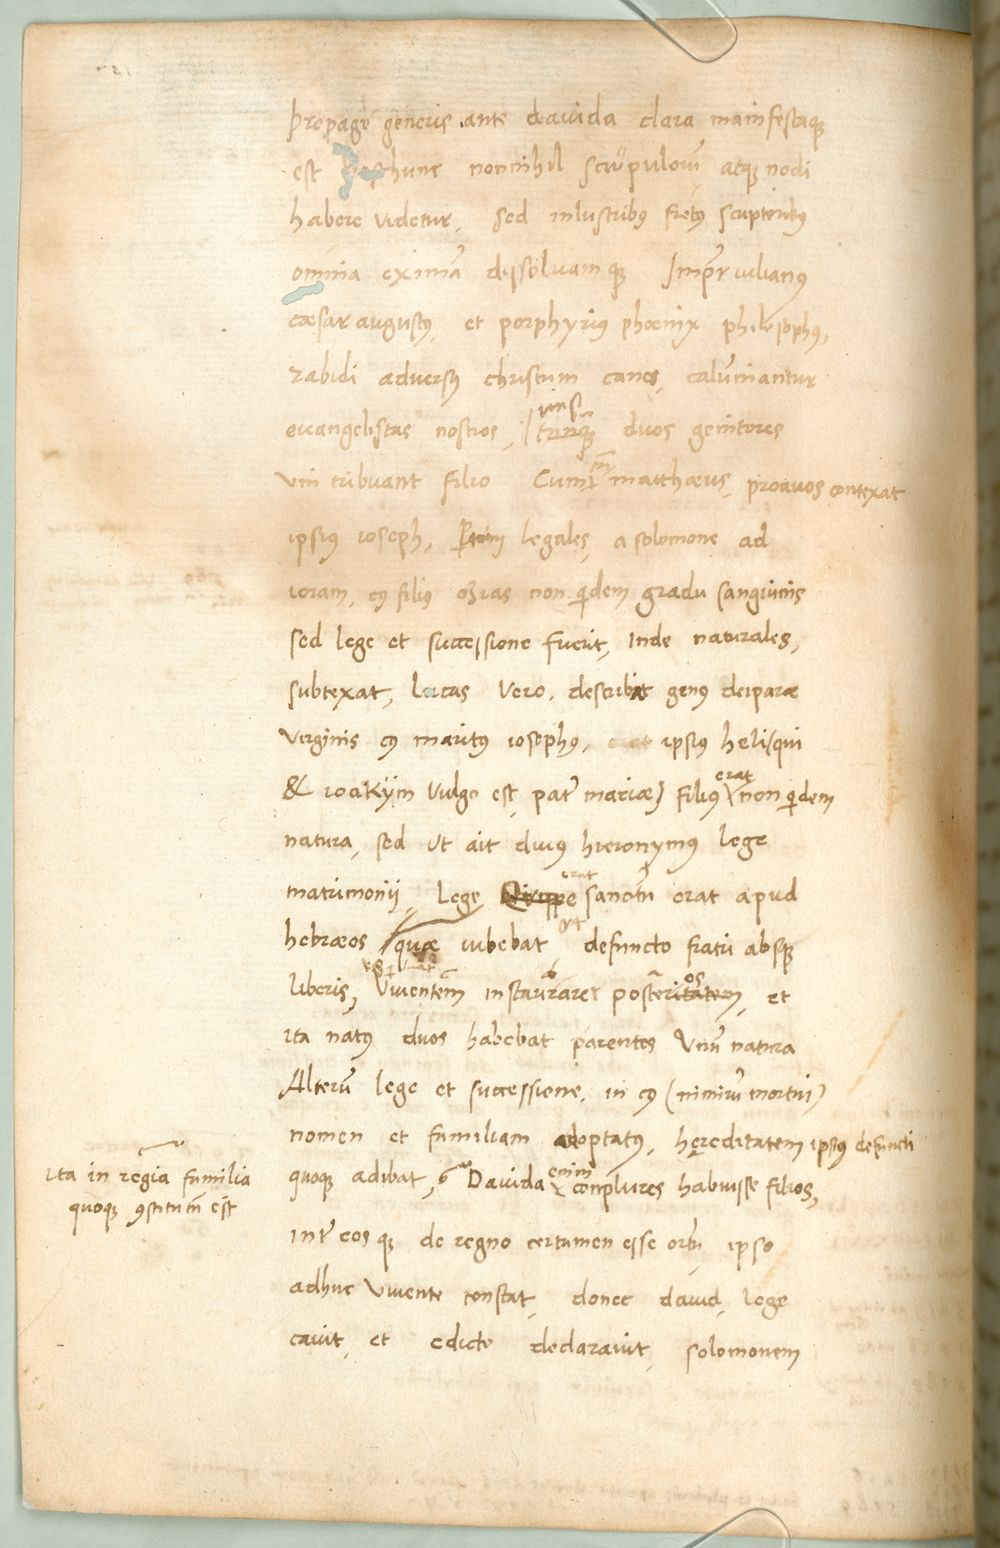 propago generis ante davida clara manifestaq;
est posthunc nonnihil scrupulorū atq; nodi
habere videtur, sed inlustribꝰ fretꝰ scriptoribꝰ
omnia eximā dissolvam q; Imp̄r iulianꝰ
cæsar augustꝰ, et porphyriꝰ phœnix philosophꝰ,
rabidi adversꝰ christum canes, calūniantur
evangelistas nostros, duos genitores
uni tribuant filio Cum matthæus, proavos contexat
ipsiꝰ ioseph, legales, a solomone ad
ioram, cꝰ filiꝰ ozias non q̄dem gradu sanguinis
sed lege et successione fuerit, inde naturales,
subtexat, lucas vero, describat genꝰ deiparæ
virginis cꝰ maritꝰ iosephꝰ, ipsiꝰ heli (qui
& ioakijm vulgo est pat̄ mariæ) filiꝰ erat non q̄dem
natura, sed ut ait divꝰ hieronymꝰ lege
matrimonij, Lege Quippe erat sanctū erat apud
hebræos quæ iubebat ut defuncto fratri absq;
liberis, viventem instauraret posteritatem, et
ita natꝰ duos habebat parentes Unū natura
Alterū lege et successione, in cꝰ (nimirū mortui)
nomen et familiam adoptatꝰ, hereditatem ipsiꝰ defuncti
quoq; adibat, Davida enim complures habuisse filios,
int̄ eos q; de regno certamen esse ortū ipso
adhuc vivente constat, donec david, lege
cavit, et edicto declaravit, solomonem
ita in regia familia
quoq; ꝯstitutū est